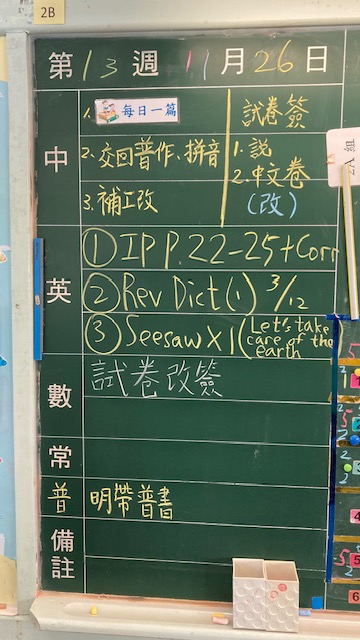 2B
第 13 週 11 月 26 日
中
1. 每日一篇
2. 交回普作、拼音
3. 補工改
試卷簽
1. 説
2. 中文卷
(改)
2A 組
英
① IP P.22-25 + Corr
② Rev Dict (1) 3/12
③ Seesaw X 1 (Let's take
care of the
earth
數
試卷改簽
常
普
明帶普書
備註